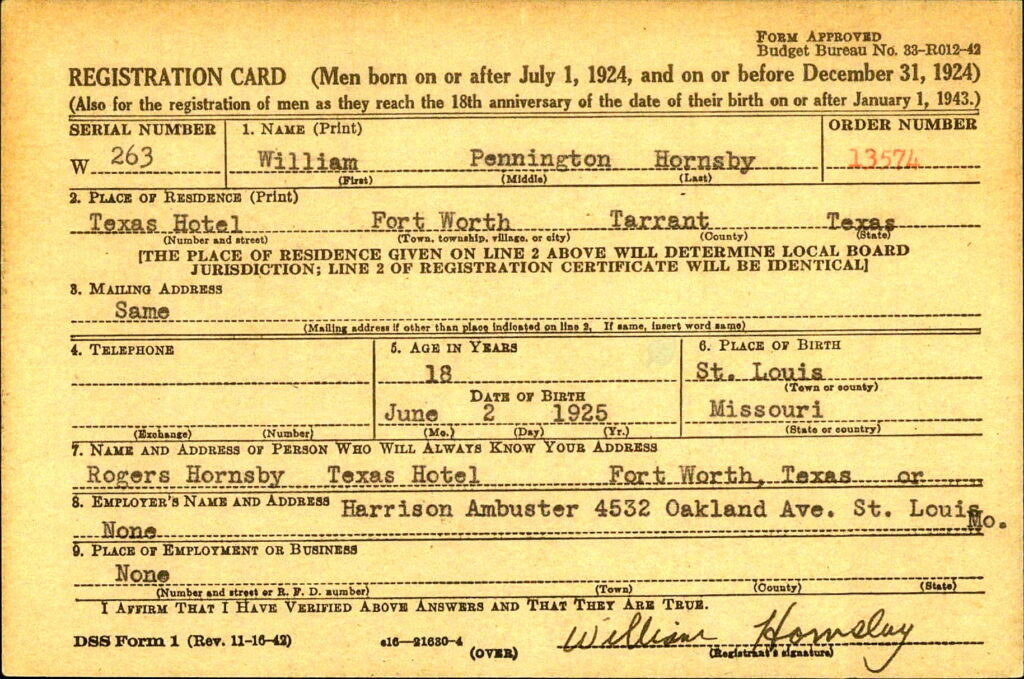 FORM APPROVED
Budget Bureau No. 33-R012-42
REGISTRATION CARD (Men born on or after July 1, 1924, and on or before December 31, 1924)
(Also for the registration of men as they reach the 18th anniversary of the date of their birth on or after January 1, 1943.)
SERIAL NUMBER 1. NAME (Print) ORDER NUMBER
W 263 William Pennington Hornsby 13574
(First) (Middle) (Last)
2. PLACE OF RESIDENCE (Print)
Texas Hotel Fort Worth Tarrant Texas
(Number and street) (Town, township, village, or city) (County) (State)
[THE PLACE OF RESIDENCE GIVEN ON LINE 2 ABOVE WILL DETERMINE LOCAL BOARD
JURISDICTION; LINE 2 OF REGISTRATION CERTIFICATE WILL BE IDENTICAL]
3. MAILING ADDRESS
Same
(Mailing address if other than place indicated on line 2. If same, insert word same)
4. TELEPHONE 5. AGE IN YEARS 6. PLACE OF BIRTH
18 St. Louis
(Town or county)
DATE OF BIRTH
June 2 1925 Missouri
(Exchange) (Number) (Mo.) (Day) (Yr.) (State or country)
7. NAME AND ADDRESS OF PERSON WHO WILL ALWAYS KNOW YOUR ADDRESS
Rogers Hornsby Texas Hotel Fort Worth, Texas or
8. EMPLOYER'S NAME AND ADDRESS Harrison Ambuster 4532 Oakland Ave. St. Louis Mo.
None
9. PLACE OF EMPLOYMENT OR BUSINESS
None
(Number and street or R. F. D. number) (Town) (County) (State)
I AFFIRM THAT I HAVE VERIFIED ABOVE ANSWERS AND THAT THEY ARE TRUE.
DSS Form 1 (Rev. 11-16-42) e16-21630-4 (OVER) William Hornsby
(Registrant's signature)